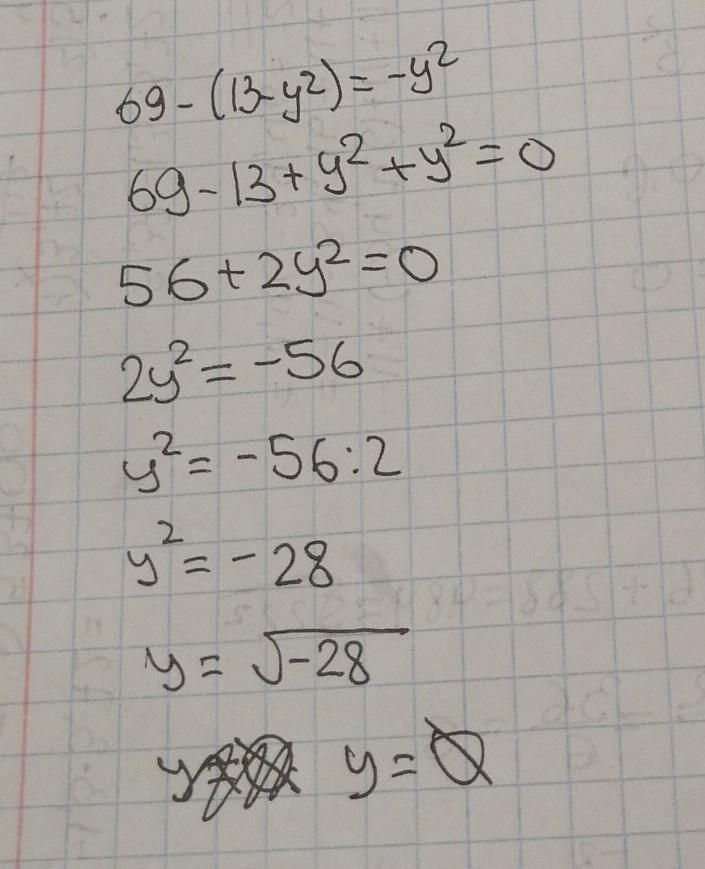 69-(13-y²)=-y²
69-13+y²+y²=0
56+2y²=0
2y²=-56
y²=-56:2
y²=-28
y=√-28
y y=∅